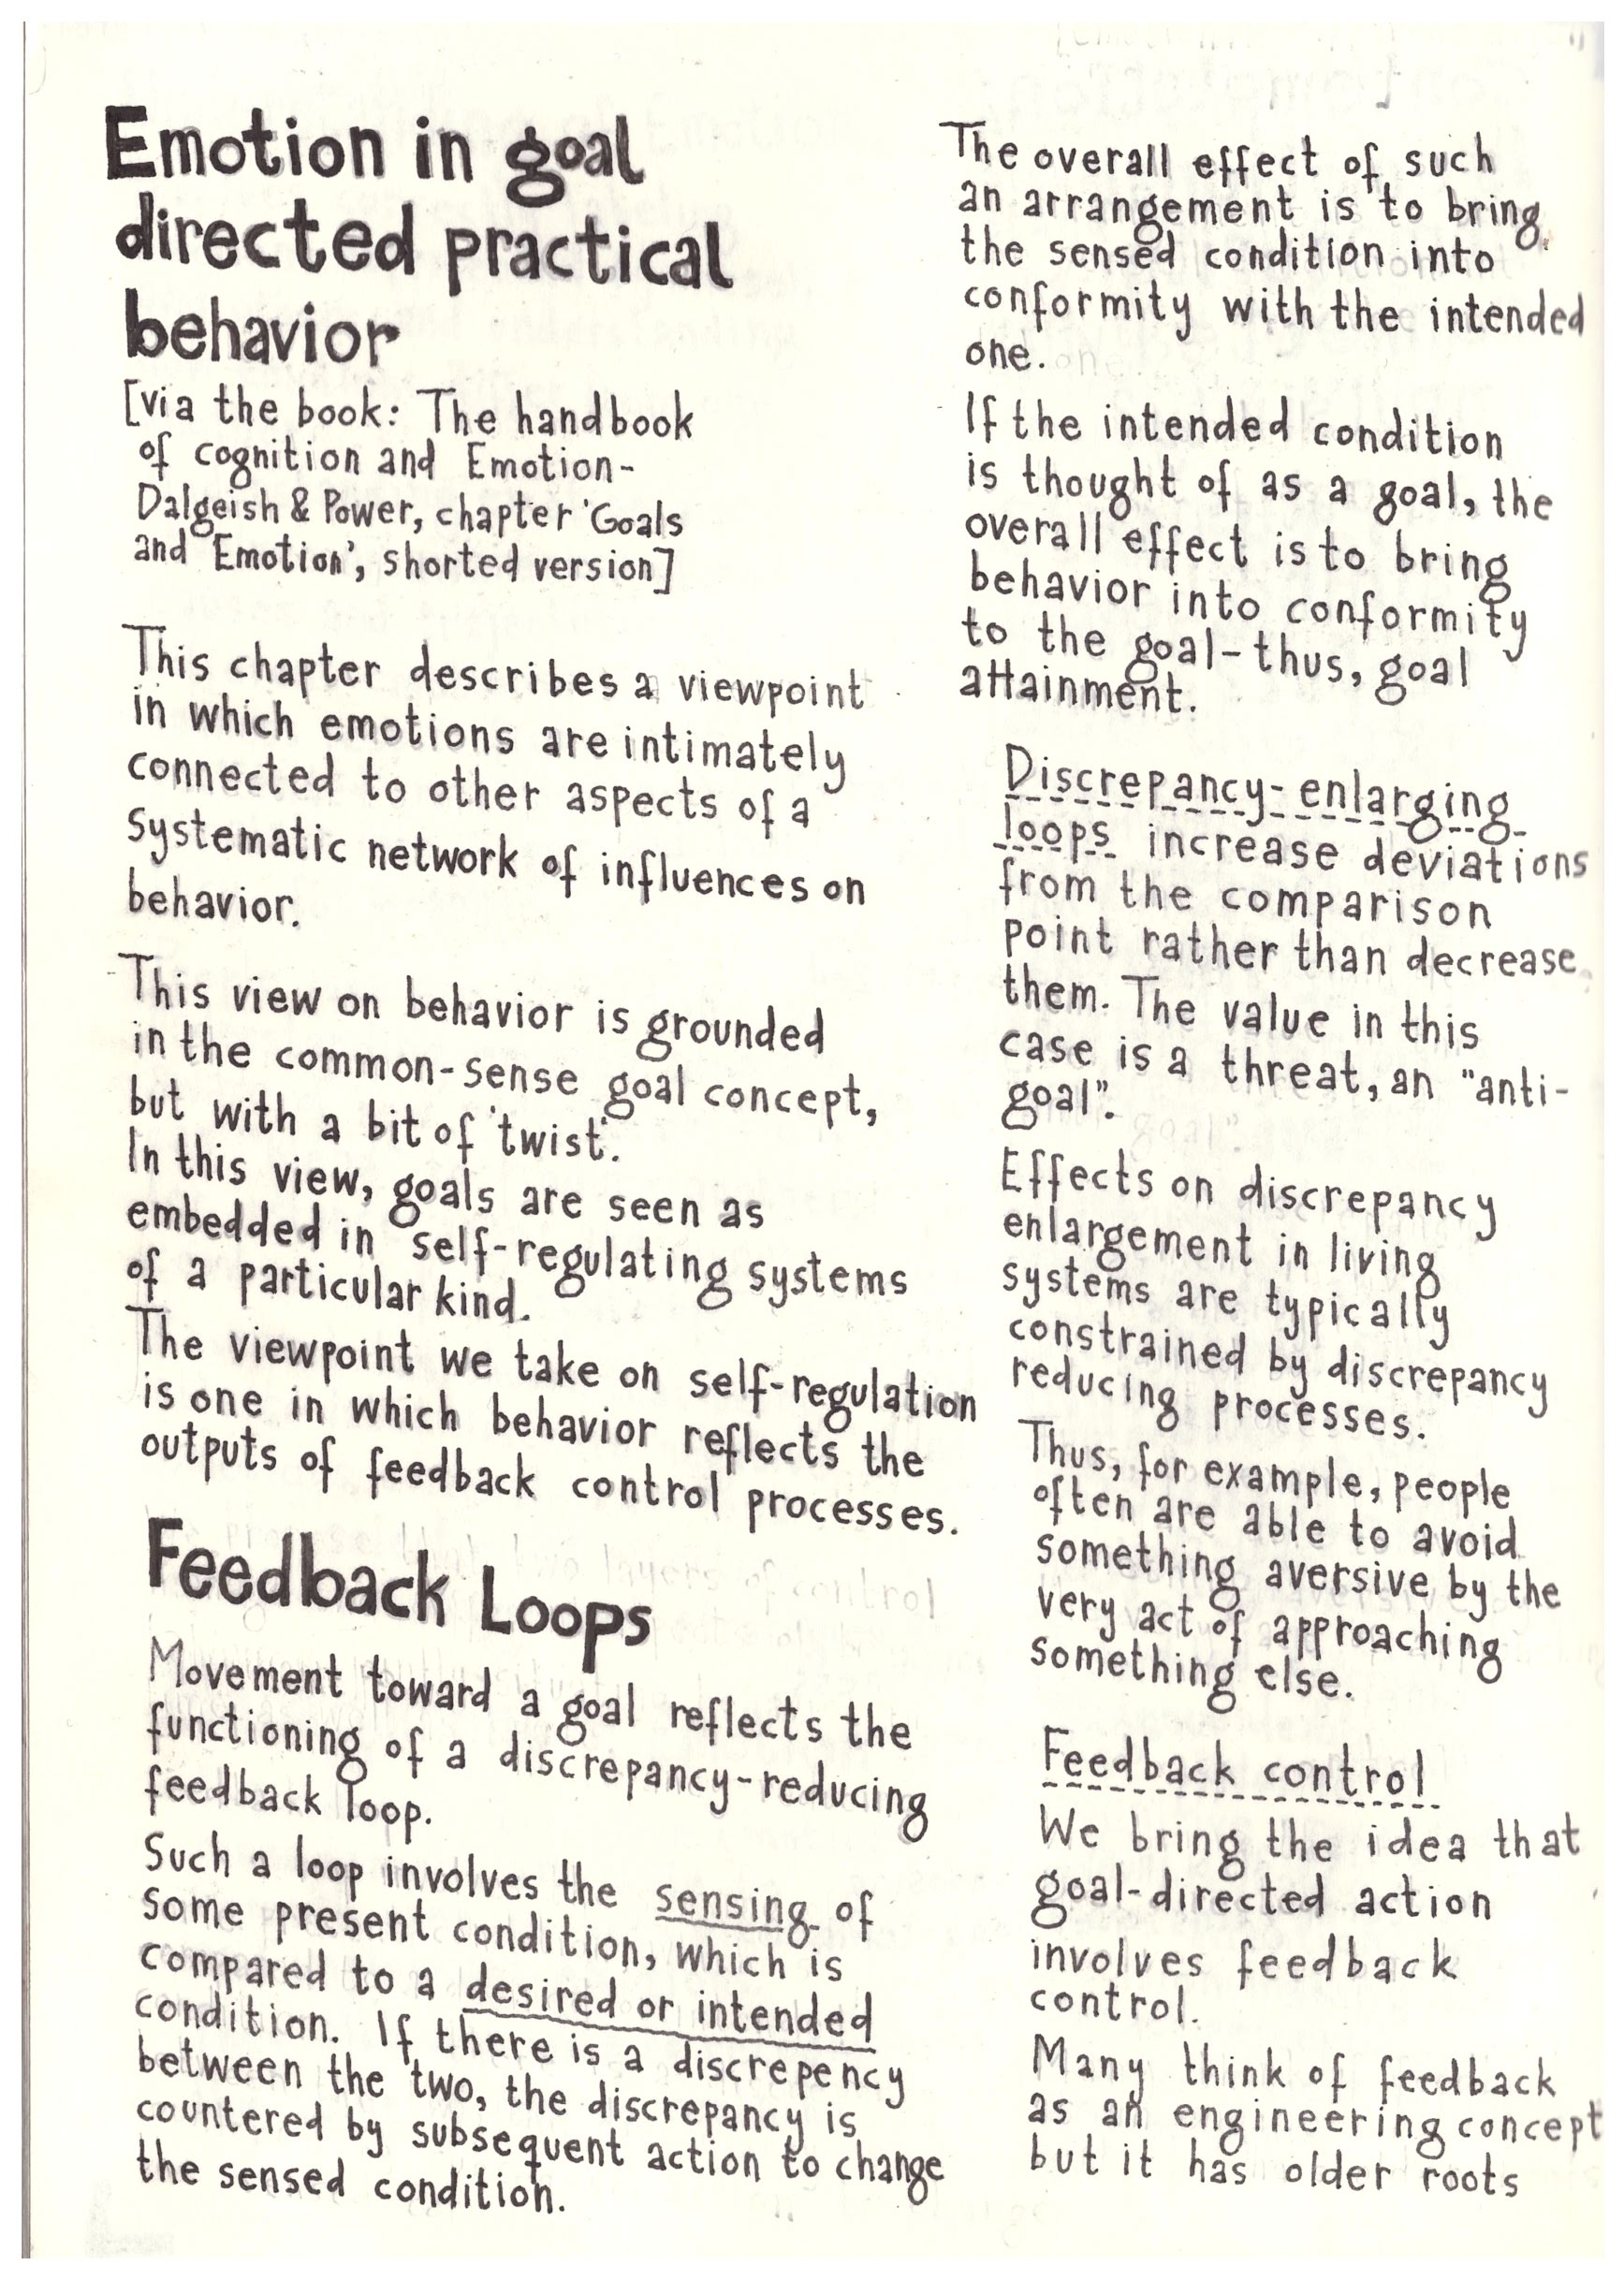 Emotion in goal
directed practical
behavior
[via the book: The handbook
of cognition and Emotion-
Dalgeish & Power, chapter 'Goals
and Emotion', shorted version]
This chapter describes a viewpoint
in which emotions are intimately
connected to other aspects of a
systematic network of influences on
behavior.
This view on behavior is grounded
in the common-sense goal concept,
but with a bit of 'twist'.
In this view, goals are seen as
embedded in self-regulating systems
of a particular kind.
The viewpoint we take on self-regulation
is one in which behavior reflects the
outputs of feedback control processes.
Feedback Loops
Movement toward a goal reflects the
functioning of a discrepancy-reducing
feedback loop.
Such a loop involves the sensing of
some present condition, which is
compared to a desired or intended
condition. If there is a discrepency
between the two, the discrepancy is
countered by subsequent action to change
the sensed condition.
The overall effect of such
an arrangement is to bring
the sensed condition into
conformity with the intended
one.
If the intended condition
is thought of as a goal, the
overall effect is to bring
behavior into conformity
to the goal-thus, goal
attainment.
Discrepancy-enlarging
loops increase deviations
from the comparison
point rather than decrease
them. The value in this
case is a threat, an "anti-
goal".
Effects on discrepancy
enlargement in living
systems are typically
constrained by discrepancy
reducing processes.
Thus, for example, people
often are able to avoid
something aversive by the
very act of approaching
something else.
Feedback control
We bring the idea that
goal-directed action
involves feedback
control.
Many think of feedback
as an engineering concept
but it has older roots